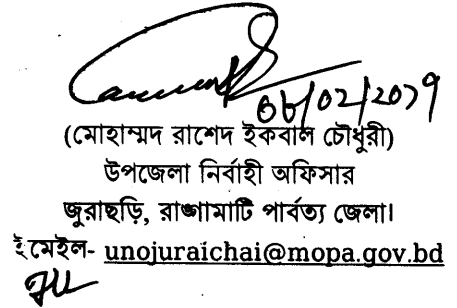 (মোহাম্মদ রাশেদ ইকবাল চৌধুরী)
উপজেলা নির্বাহী অফিসার
জুরাছড়ি, রাঙ্গামাটি পার্বত্য জেলা।
ইমেইল- unojuraichai@mopa.gov.bd